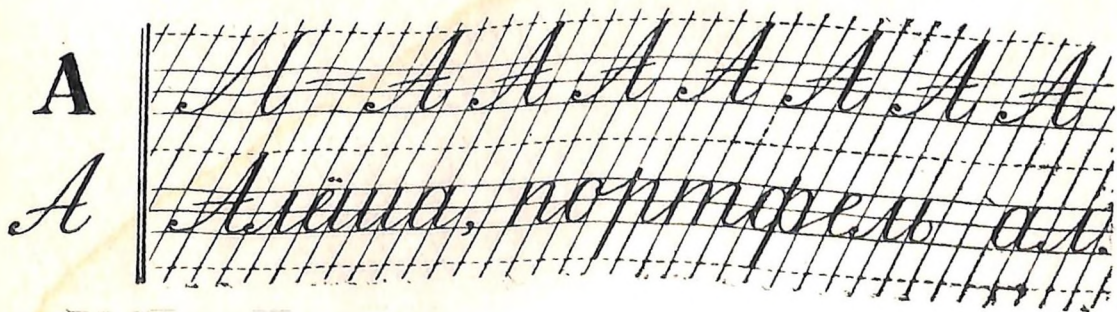 А Л – А А А А А А А
А Алёша, портфель ал